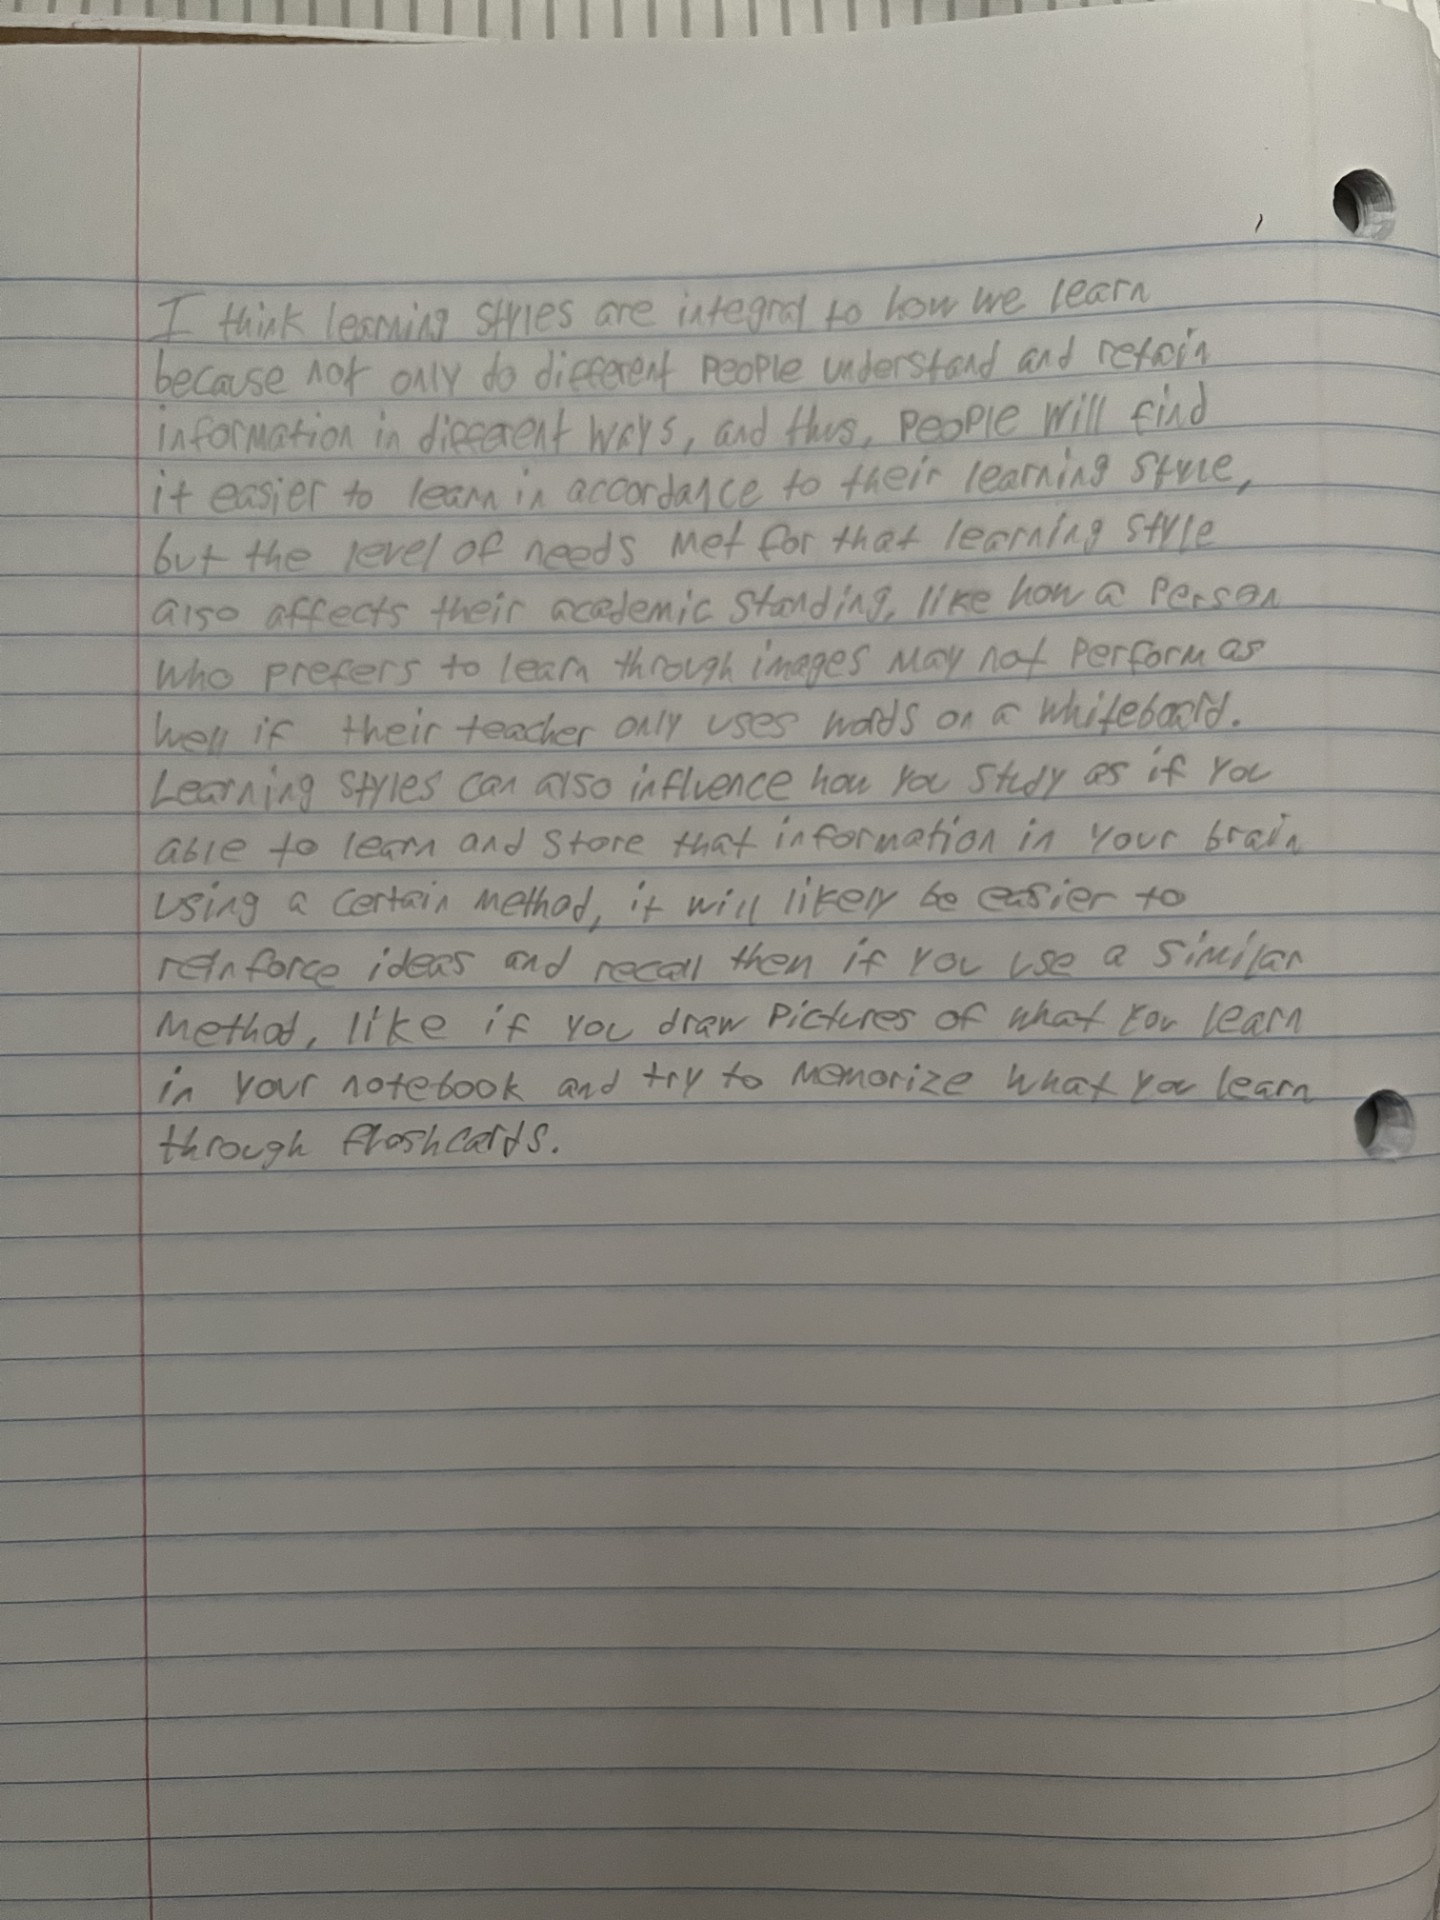 I think learning styles are integral to how we learn
because not only do different people understand and retain
information in different ways, and thus, people will find
it easier to learn in accordance to their learning style,
but the level of needs met for that learning style
also affects their academic standing, like how a person
who prefers to learn through images may not perform as
well if their teacher only uses words on a whiteboard.
Learning styles can also influence how you study as if you
able to learn and store that information in your brain
using a certain method, it will likely be easier to
reinforce ideas and recall then if you use a similar
method, like if you draw pictures of what you learn
in your notebook and try to memorize what you learn
through flashcards.